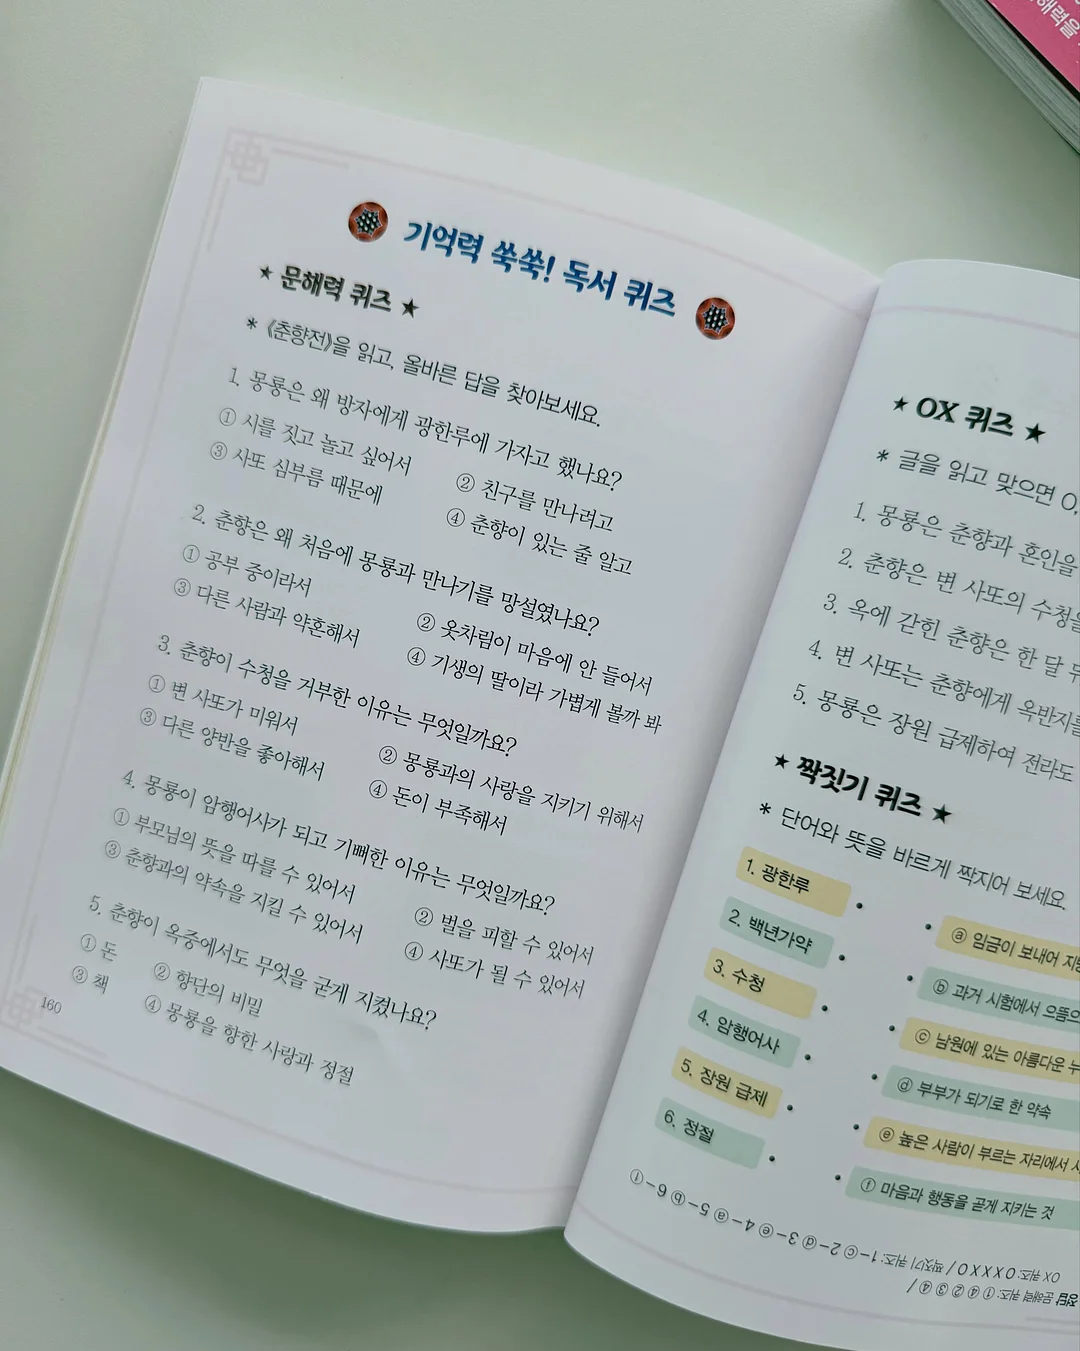 해력을
기억력 쑥쑥! 독서 퀴즈
★ 문해력 퀴즈 ★
* 《춘향전》을 읽고, 올바른 답을 찾아보세요.
1. 몽룡은 왜 방자에게 광한루에 가자고 했나요?
① 시를 짓고 놀고 싶어서 ② 친구를 만나려고
③ 사또 심부름 때문에 ④ 춘향이 있는 줄 알고
2. 춘향은 왜 처음에 몽룡과 만나기를 망설였나요?
① 공부 중이라서 ② 옷차림이 마음에 안 들어서
③ 다른 사람과 약혼해서 ④ 기생의 딸이라 가볍게 볼까 봐
3. 춘향이 수청을 거부한 이유는 무엇일까요?
① 변 사또가 미워서 ② 몽룡과의 사랑을 지키기 위해서
③ 다른 양반을 좋아해서 ④ 돈이 부족해서
4. 몽룡이 암행어사가 되고 기뻐한 이유는 무엇일까요?
① 부모님의 뜻을 따를 수 있어서 ② 벌을 피할 수 있어서
③ 춘향과의 약속을 지킬 수 있어서 ④ 사또가 될 수 있어서
5. 춘향이 옥중에서도 무엇을 굳게 지켰나요?
① 돈 ② 향단의 비밀
③ 책 ④ 몽룡을 향한 사랑과 정절
160
★ OX 퀴즈 ★
* 글을 읽고 맞으면 O,
1. 몽룡은 춘향과 혼인을
2. 춘향은 변 사또의 수청을
3. 옥에 갇힌 춘향은 한 달
4. 변 사또는 춘향에게 옥반지를
5. 몽룡은 장원 급제하여 전라도
★ 짝짓기 퀴즈 ★
* 단어와 뜻을 바르게 짝지어 보세요.
1. 광한루
2. 백년가약
3. 수청
4. 암행어사
5. 장원 급제
6. 정절
ⓐ 임금이 보내어
ⓑ 과거 시험에서 으뜸으
ⓒ 남원에 있는 아름다운 누
ⓓ 부부가 되기로 한 약속
ⓔ 높은 사람이 부르는 자리에서
ⓕ 마음과 행동을 곧게 지키는 것
정답 문해력 퀴즈: ①④②③④ /
OX 퀴즈: OXXXO / 짝짓기 퀴즈: 1-ⓒ 2-ⓓ 3-ⓔ 4-ⓐ 5-ⓑ 6-ⓕ